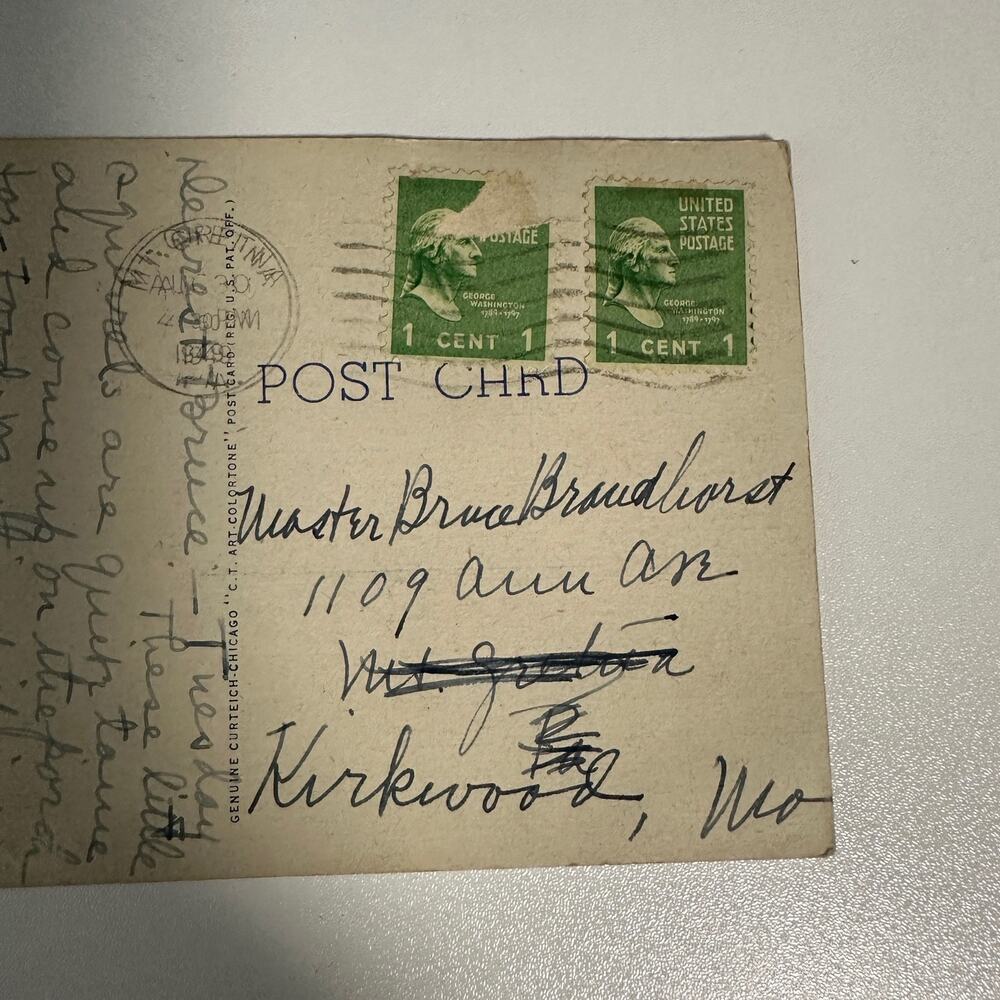 Dear Bruce:— Tuesday
These little
animals are quite tame
and come up on the porch
for food.
MT. GRETNA
AUG 30
4 30 PM
POSTAGE
GEORGE
WASHINGTON
1789-1797
1 CENT 1
UNITED
STATES
POSTAGE
GEORGE
WASHINGTON
1789-1797
1 CENT 1
POST CARD
GENUINE CURTEICH-CHICAGO "C.T. ART-COLORTONE" POST CARD (REG. U.S. PAT. OFF.)
Master Bruce Brandhorst
1109 Ann Ave
Mt. Gretna
Pa.
Kirkwood, Mo